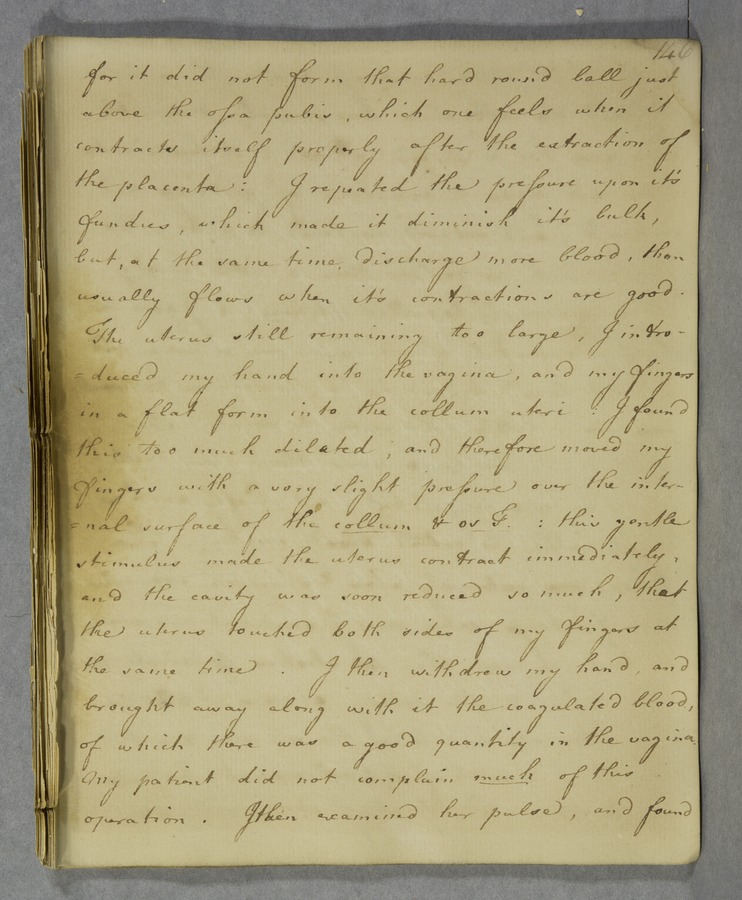 146
for it did not form that hard round ball just
above the ossa pubis, which one feels when it
contracts itself properly after the extraction of
the placenta: I repeated the pressure upon it's
fundus, which made it diminish it's bulk,
but, at the same time, discharge more blood, than
usually flows when it's contractions are good.
The uterus still remaining too large, I intro-
=duced my hand into the vagina, and my fingers
in a flat form into the collum uteri: I found
this too much dilated; and therefore moved my
fingers with a very slight pressure over the inter-
=nal surface of the collum & os T.: this gentle
stimulus made the uterus contract immediately,
and the cavity was soon reduced so much, that
the uterus touched both sides of my fingers at
the same time. I then withdrew my hand, and
brought away along with it the coagulated blood,
of which there was a good quantity in the vagina.
My patient did not complain much of this
operation. I then examined her pulse, and found